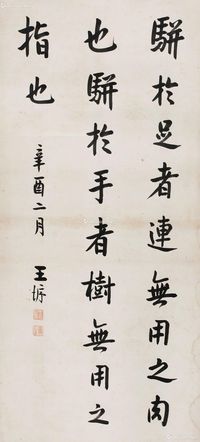 駢於足者連無用之肉
也駢於手者樹無用之
指也
辛酉二月
王㑊